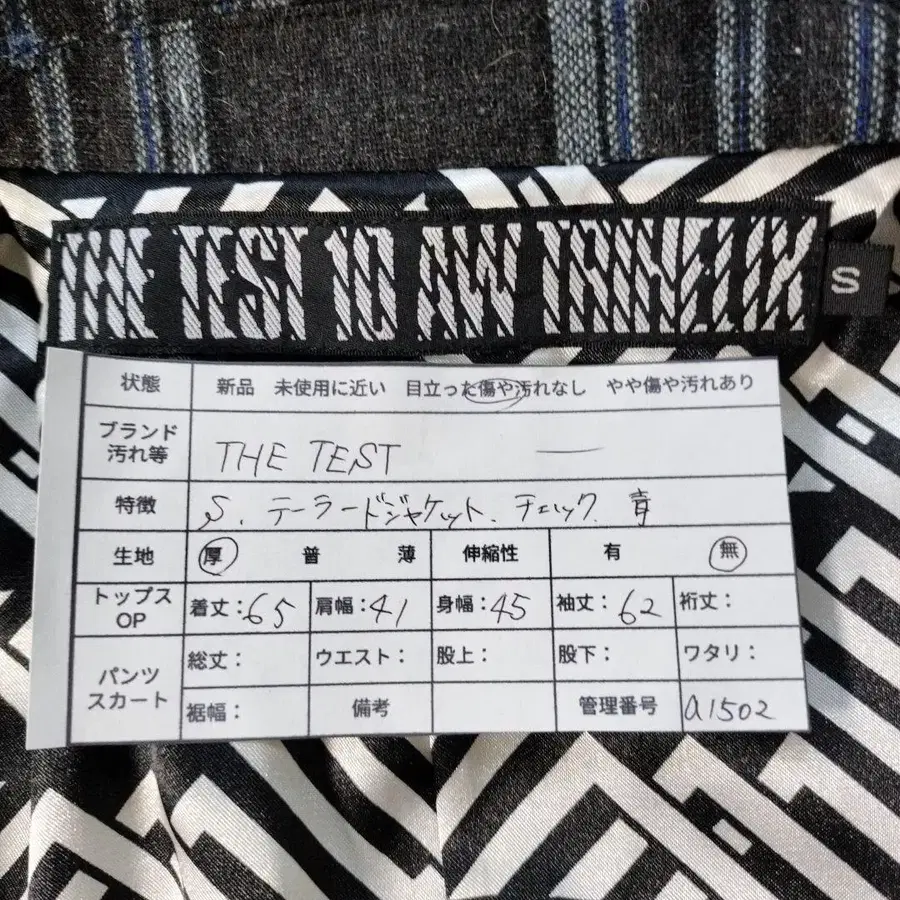 THE TEST 10 AW
S
状態 新品 未使用に近い 目立った傷や汚れなし やや傷や汚れあり
ブランド
汚れ等 THE TEST —
特徴 S. テーラードジャケット. チェック. 青
生地 厚 普 薄 伸縮性 有 無
トップス
OP 着丈:65 肩幅:41 身幅:45 袖丈:62 裄丈:
パンツ
スカート 総丈: ウエスト: 股上: 股下: ワタリ:
裾幅: 備考 管理番号 a1502